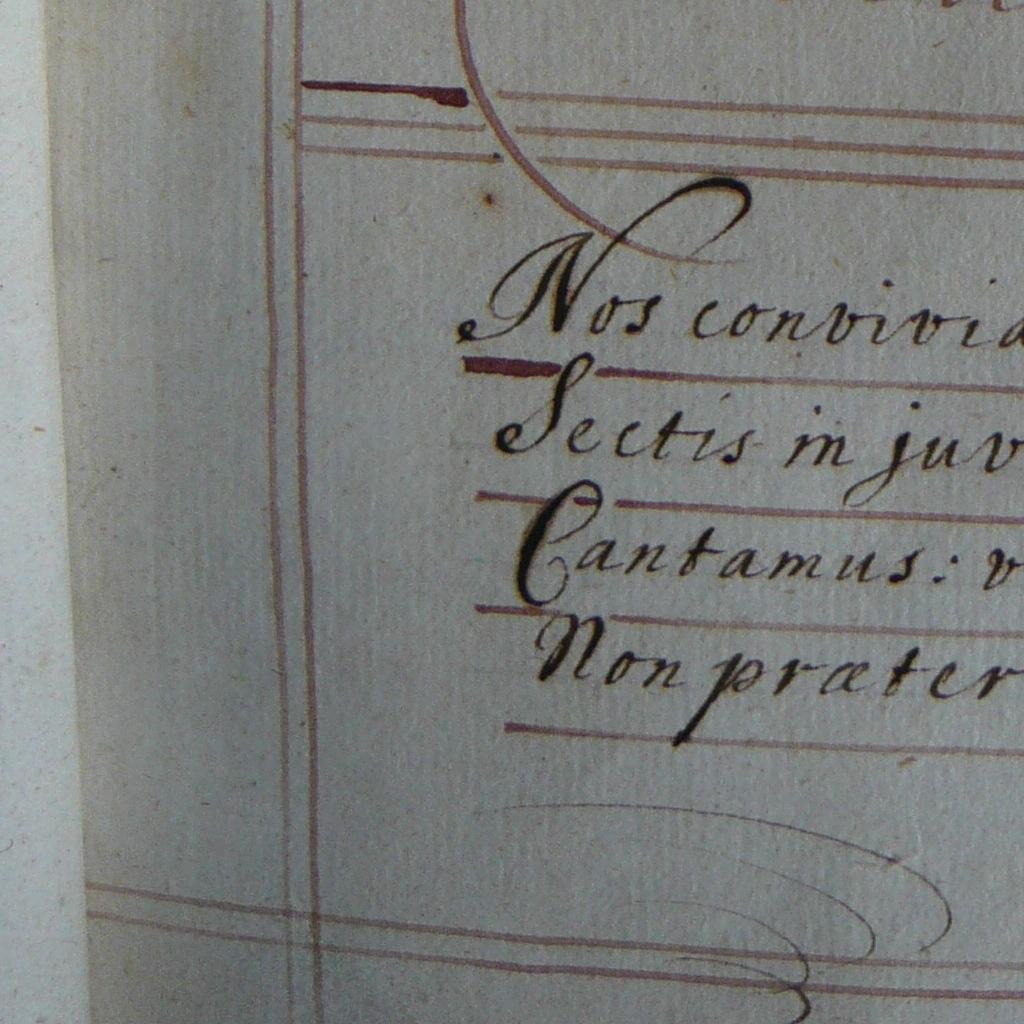 Nos convivia
Sectis in juv
Cantamus: v
Non præter